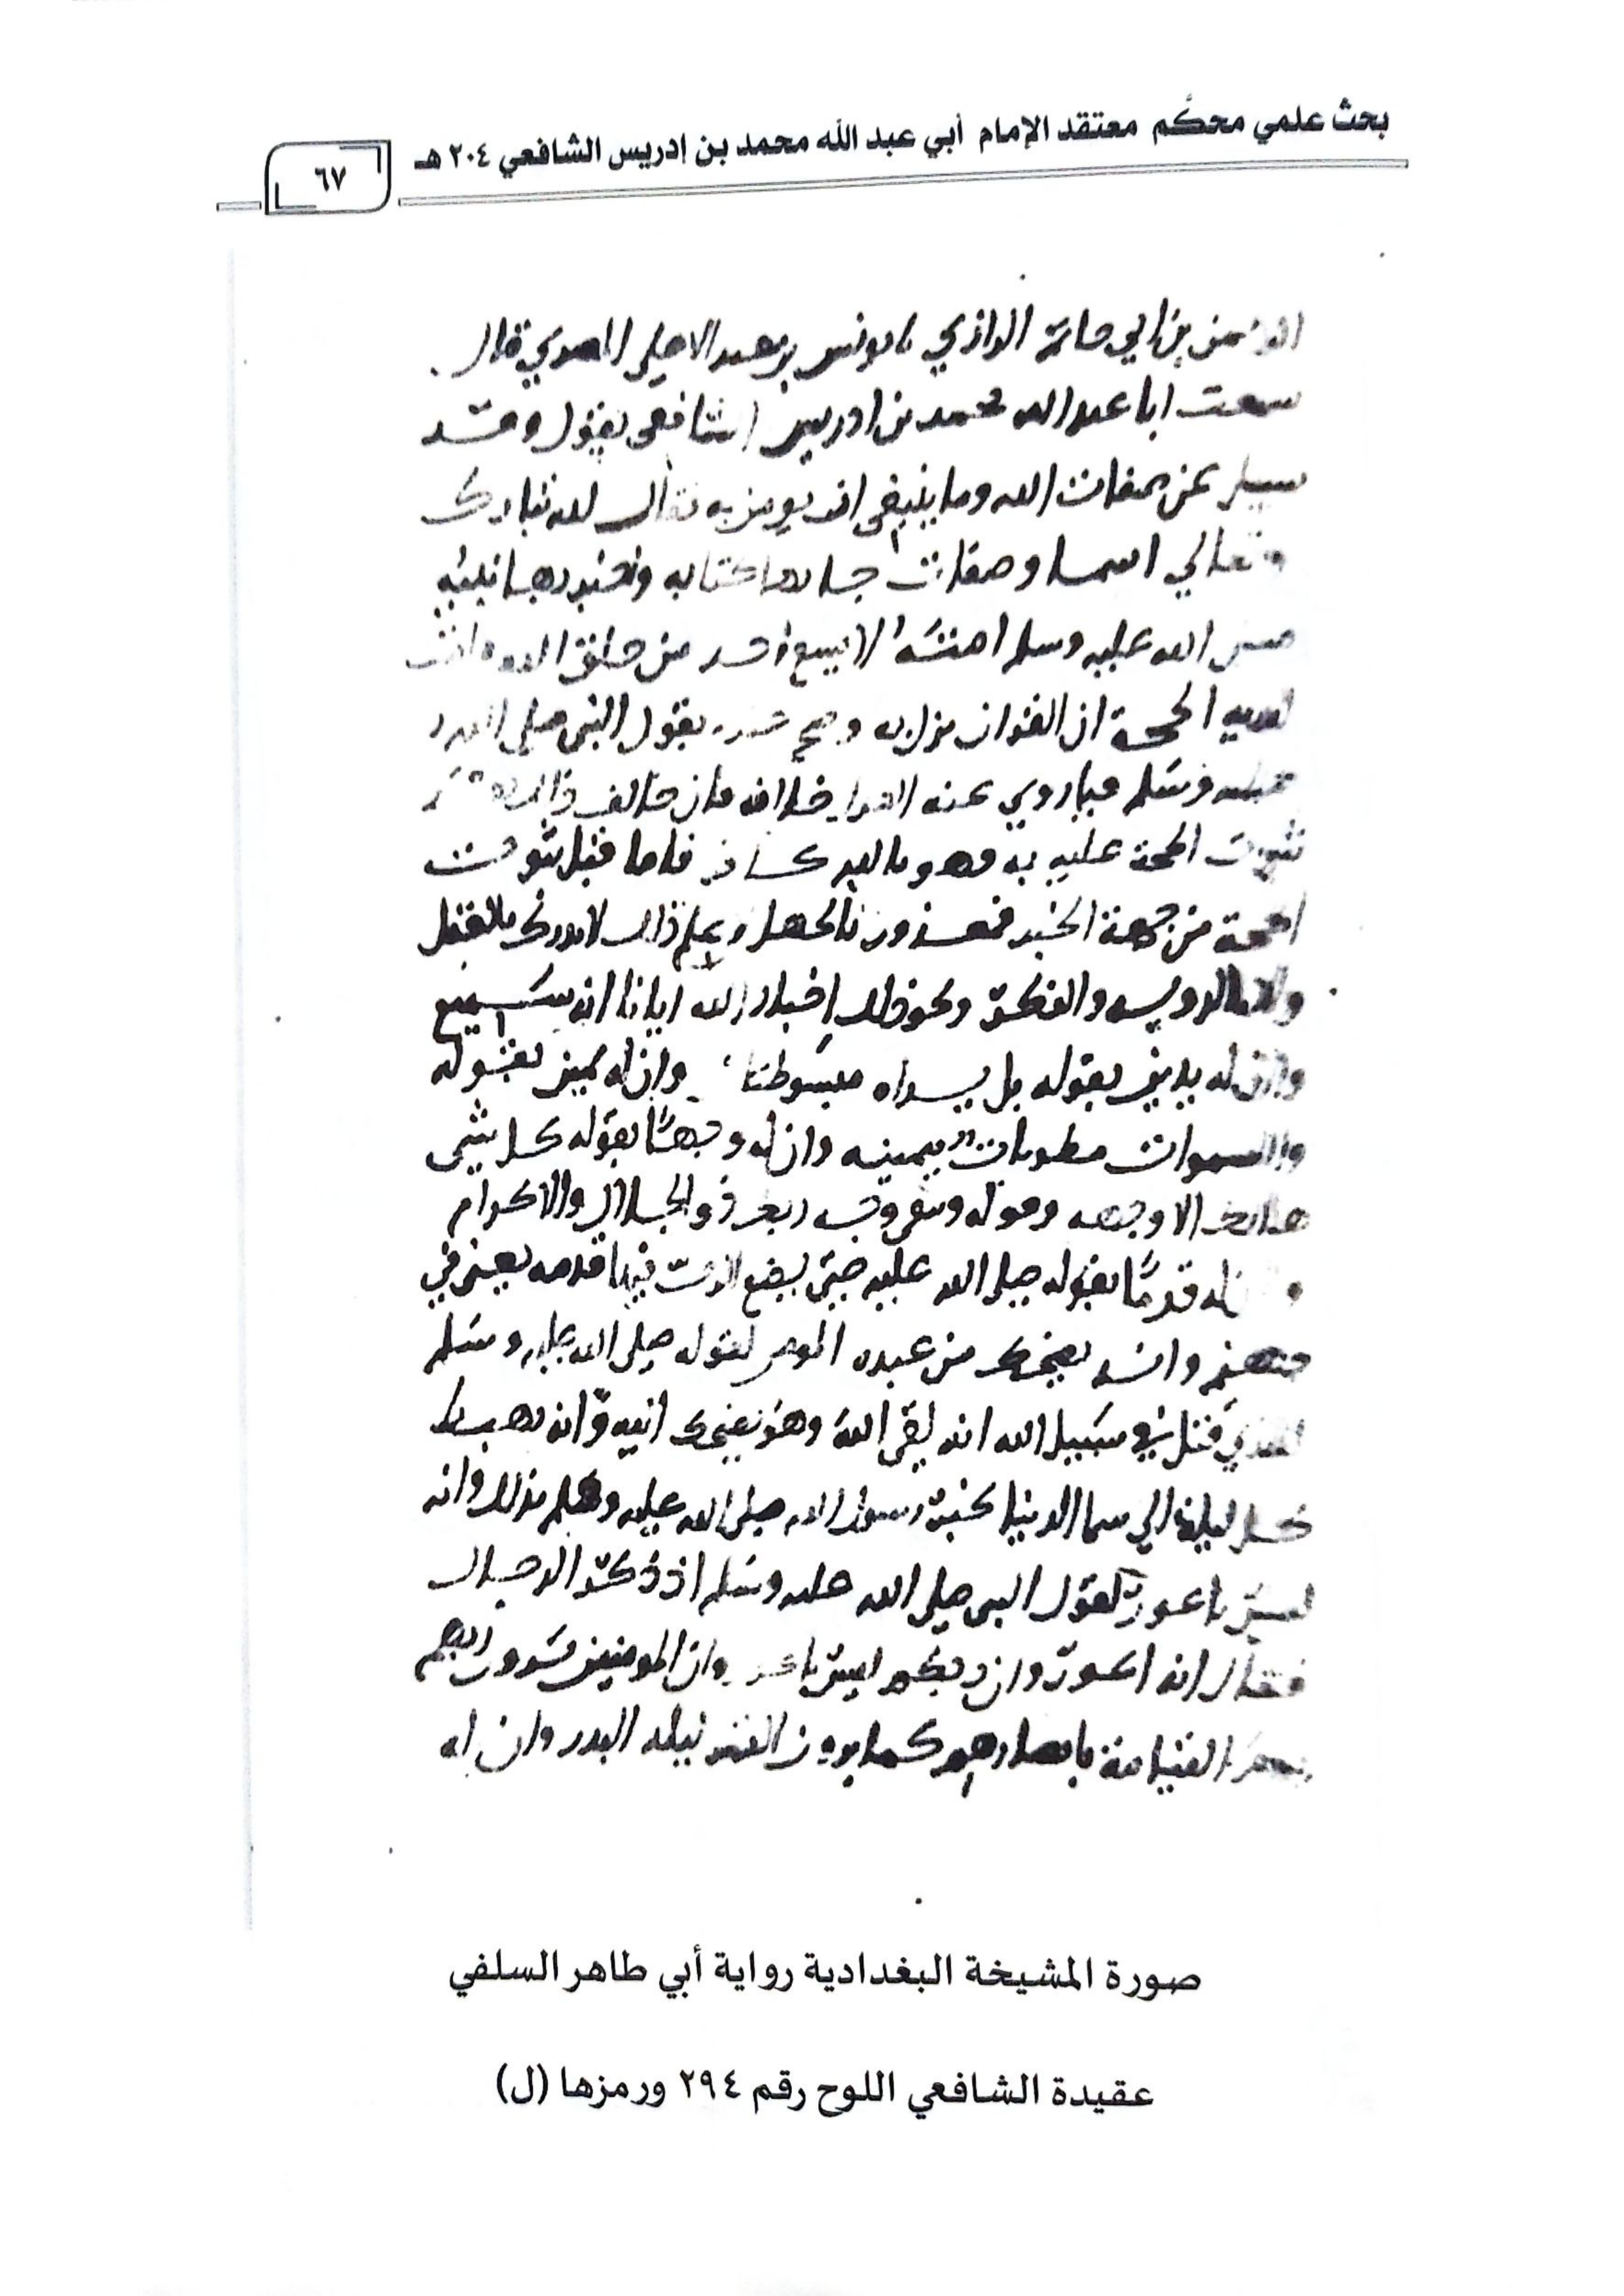 بحث علمي محكَّم معتقد الإمام أبي عبد الله محمد بن ادريس الشافعي ٢٠٤ هـ
٦٧
بن ابي حاتم الرازي نا يونس بن عبد الاعلى المصري قال
سمعت ابا عبد الله محمد بن ادريس الشافعي يقول وقد
سيل عن صفات الله وما ينبغي ان يومن به فقال لله تبارك
وتعالي اسما وصفات جا بها كتابه وخبر بها نبيه
صلى الله عليه وسلم امته لا يسع احد من خلق الله قامت
لديه الحجة ان القران نزل به وصح عنده بقول النبي صلى الله
عليه وسلم فيما روي عنه العدل خلافه فان خالف ذلك بعد
ثبوت الحجة عليه به فهو بالله كافر فاما قبل ثبوت
الحجة من جهة الخبر فمعذور بالجهل علم ذلك لا يدرك بالعقل
ولا بالرويه والفكر ونحو ذلك اخبار الله ايانا انه سميع
وان له يدين بقوله بل يداه مبسوطتان وان له يمين بقوله
والسموات مطويات بيمينه وان له وجها بقوله كل شي
هالك الا وجهه وقوله ويبقى وجه ربك ذو الجلال والاكرام
له قدما بقوله صلى الله عليه حتى يضع الرب فيها قدمه يعني في
جهنم وانه يضحك من عبده المومن لقوله صلى الله عليه وسلم
للذي قتل في سبيل الله انه لقي الله وهو يضحك اليه وانه يهبط
كل ليلة الي سما الدنيا بخبر رسول الله صلى الله عليه وسلم بذلك وانه
ليس باعور لقول النبي صلى الله عليه وسلم اذ ذكر الدجال
فقال انه اعور وان ربكم ليس باعور وان المومنين يرون ربهم
يوم القيامة بابصارهم كما يرون القمر ليلة البدر وان له
صورة المشيخة البغدادية رواية أبي طاهر السلفي
عقيدة الشافعي اللوح رقم ٢٩٤ ورمزها (ل)